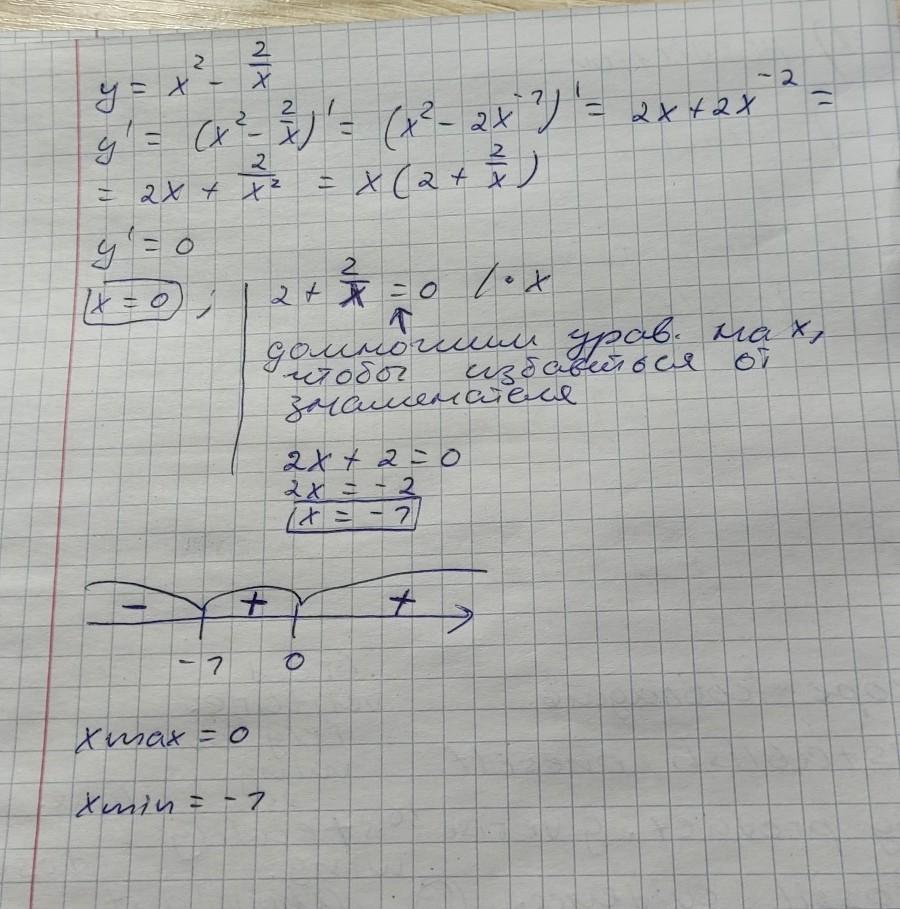 y = x² - 2/x
y' = (x² - 2/x)' = (x² - 2x⁻¹)' = 2x + 2x⁻² =
= 2x + 2/x² = x(2 + 2/x)
y' = 0
x = 0 ; 2 + 2/x = 0 / · x
домножим урав. на x,
чтобы избавиться от
знаменателя
2x + 2 = 0
2x = -2
x = -1
- + +
-1 0
xmax = 0
xmin = -1